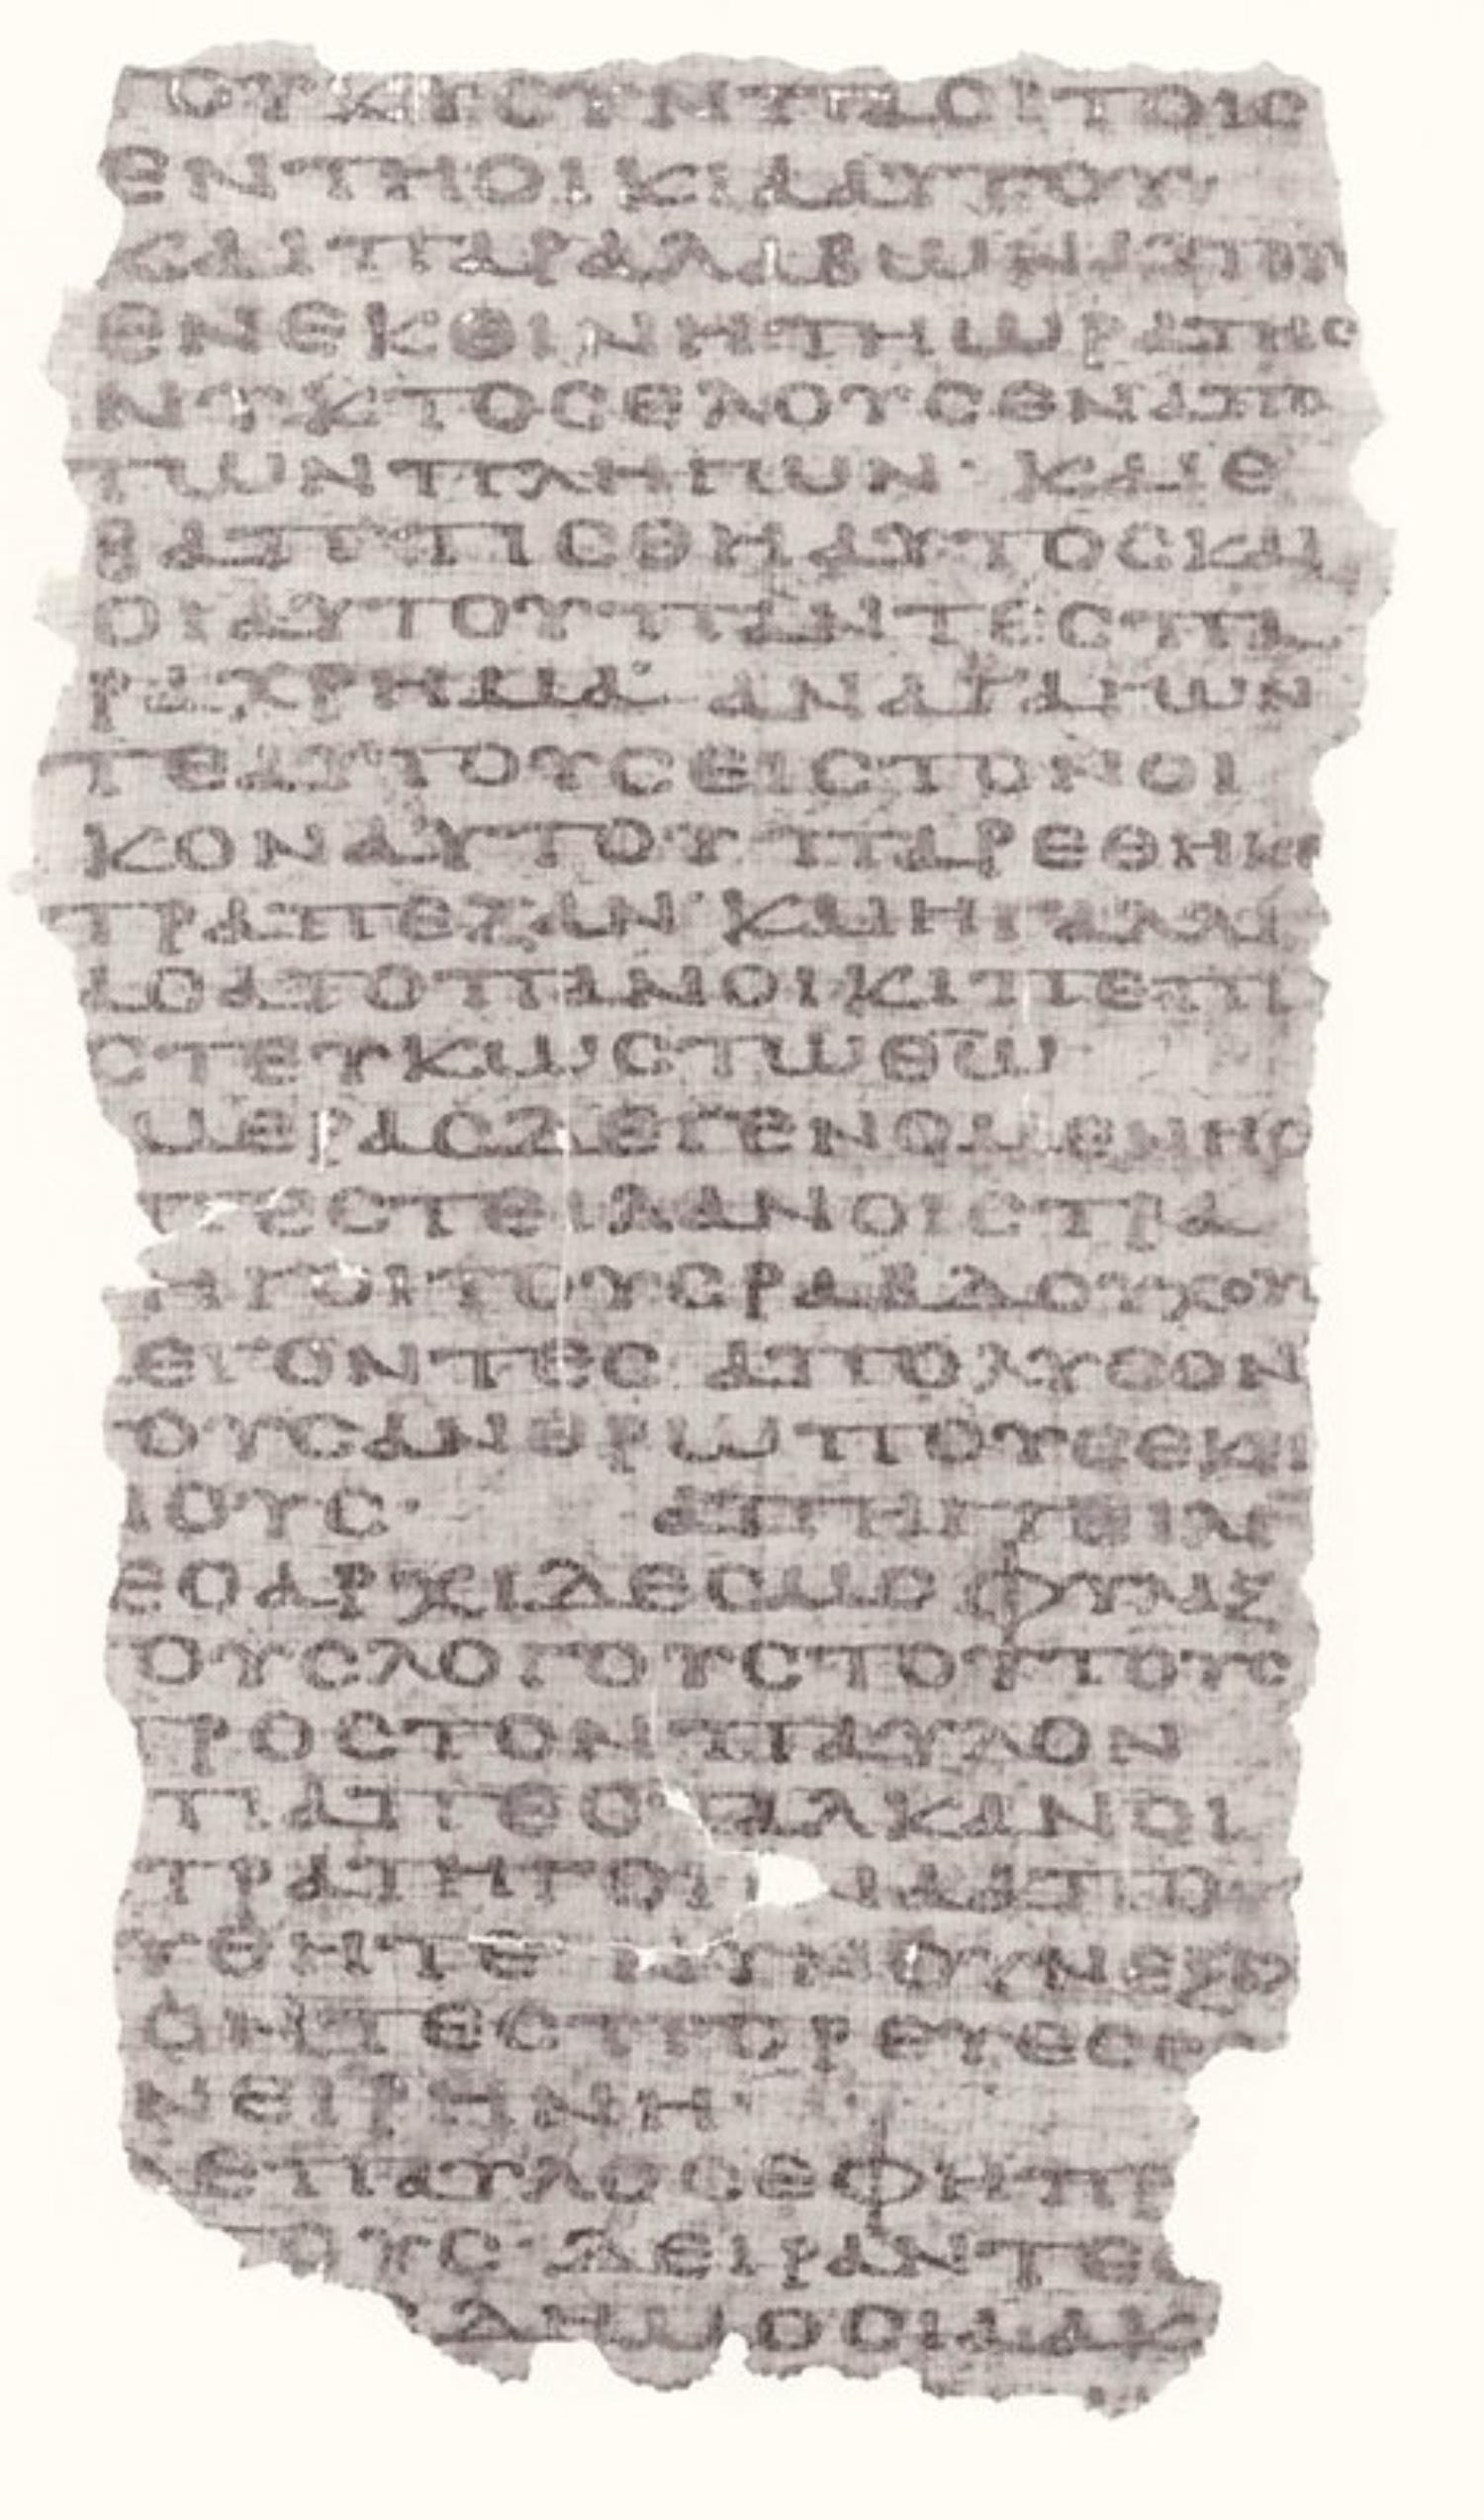 ΟΥΚΥϹΥΝΠΑϹΙΤΟΙϹ
ΕΝΤΗΟΙΚΙΑΑΥΤΟΥ
ΚΑΙΠΑΡΑΛΑΒΩΝΑΥΤΟΥ
ΕΝΕΚΕΙΝΗΤΗΩΡΑΤΗϹ
ΝΥΚΤΟϹΕΛΟΥϹΕΝΑΠΟ
ΤΩΝΠΛΗΓΩΝ· ΚΑΙΕ
ΒΑΠΤΙϹΘΗΑΥΤΟϹΚΑΙ
ΟΙΑΥΤΟΥΠΑΝΤΕϹΠΑ
ΡΑΧΡΗΜΑ· ΑΝΑΓΑΓΩΝ
ΤΕΑΥΤΟΥϹΕΙϹΤΟΝΟΙ
ΚΟΝΑΥΤΟΥΠΑΡΕΘΗΚΕ
ΤΡΑΠΕΖΑΝ· ΚΑΙΗΓΑΛΛΙ
ΑϹΑΤΟΠΑΝΟΙΚΙΠΕΠΙ
ϹΤΕΥΚΩϹΤΩΘ̅Ω̅
ΜΕΡΑϹΔΕΓΕΝΟΜΕΝΗϹ
ΠΕϹΤΕΙΛΑΝΟΙϹΤΡΑ
ΗΓΟΙΤΟΥϹΡΑΒΔΟΥΧΟΥ
ΕΓΟΝΤΕϹ ΑΠΟΛΥϹΟΝ
ΟΥϹΑΝΘΡΩΠΟΥϹΕΚΕΙ
ΝΟΥϹ· ΑΠΗΓΓΕΙΛΕ
ΕΟΑΡΧΙΔΕϹΜΟΦΥΛΑΞ
ΟΥϹΛΟΓΟΥϹΤΟΥΤΟΥϹ
ΠΡΟϹΤΟΝΠΑΥΛΟΝ
ΤΙΑΠΕϹΤΑΛΚΑΝΟΙ
ΤΡΑΤΗΓΟΙ ΙΝΑΑΠΟ
ΥΘΗΤΕ ΝΥΝΟΥΝΕΞΕ
ΟΝΤΕϹΠΟΡΕΥΕϹΘΕ
ΝΕΙΡΗΝΗ·
ΔΕΠΑΥΛΟϹΕΦΗΠΡ
ΤΟΥϹ· ΔΕΙΡΑΝΤΕϹ
ϹΔΗΜΟϹΙΑΑΚ